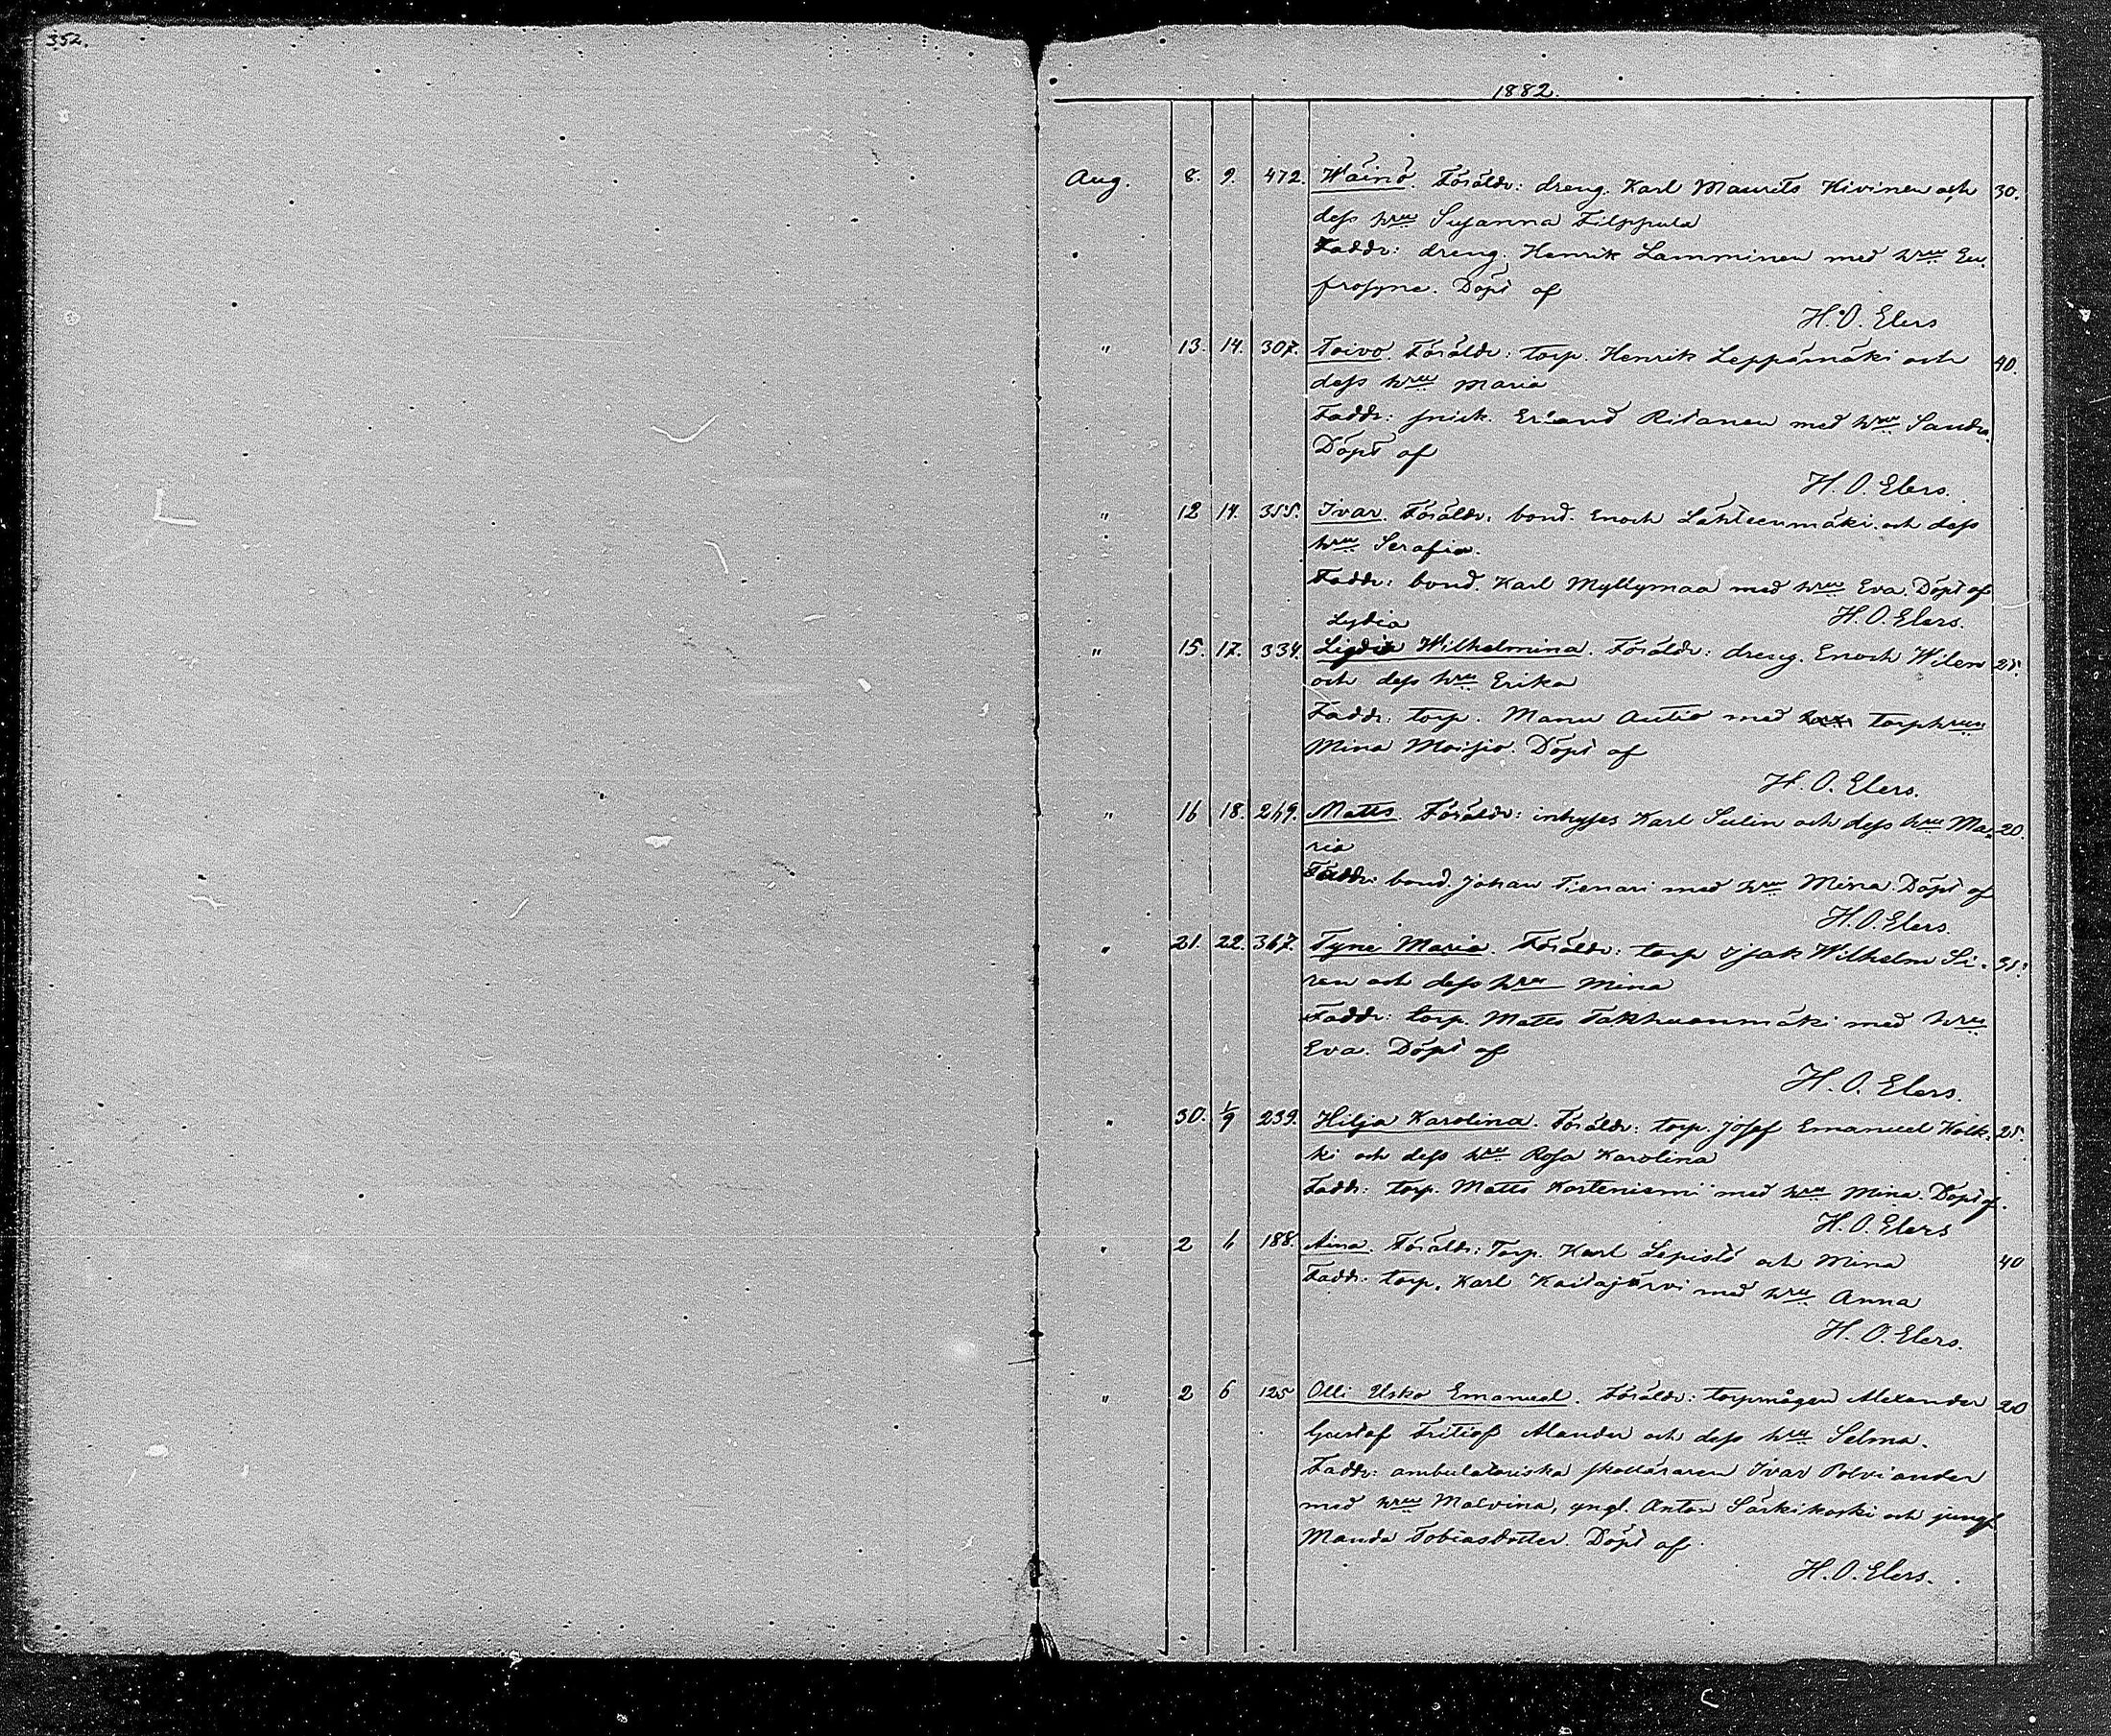 352.
1882.
Aug. 8. 9. 472. Wäinö. Föräldr: dreng. Karl Maurits Kivinen och 30.
dess hru Susanna Filppula
Faddr: dreng. Henrik Lamminen med hru Eu-
frosyne. Döpt af
H. O. Elers
" 13. 14. 307. Toivo. Föräldr: torp. Henrik Leppämäki och 40.
dess hru Maria
Faddr: snick. Erland Ritanen med hru Sandra.
Döpt af
H. O. Elers.
" 12 14. 355. Ivar. Föräldr: bond. Enoch Lähteenmäki och dess
hru Serafia.
Faddr: bond. Karl Myllymaa med hru Eva. Döpt af
H. O. Elers.
Lydia
" 15. 17. 334. Ligdia Wilhelmina. Föräldr: dreng. Enoch Wilen 25.
och dess hru Erika
Faddr: torp. Manu Autio med torphrun
Mina Moisio. Döpt af
H. O. Elers.
" 16 18. 269. Matts. Föräldr: inhyses Karl Sulin och dess hru Ma- 20.
ria
Faddr: bond. Johan Tienari med hru Mina. Döpt af
H. O. Elers.
" 21. 22. 367. Tyne Maria. Föräldr: torp Isak Wilhelm Si- 35.
ren och dess hru Mina
Faddr: torp. Matts Takhuanmäki med hru
Eva. Döpt af
H. O. Elers.
" 30. 1/9 239. Hilja Karolina. Föräldr: torp. Josef Emanuel Kolk- 25.
ki och dess hru Rosa Karolina
Faddr: torp. Matts Korteniemi med hru Mina. Döpt af.
H. O. Elers
" 2 6 188. Aina. Föräldr: Torp. Karl Lepistö och Mina 40
Faddr: torp. Karl Kaitajärvi med hru Anna
H. O. Elers.
" 2 6 125 Olli Usko Emanuel. Föräldr: torpmågen Alexander 20
Gustaf Fritiof Alander och dess hru Selma.
Faddr: ambulatoriska skolläraren Ivar Polviander
med hru Malvina, yngl. Anton Särkikoski och jungf.
Manda Tobiasdotter. Döpt af
H. O. Elers.